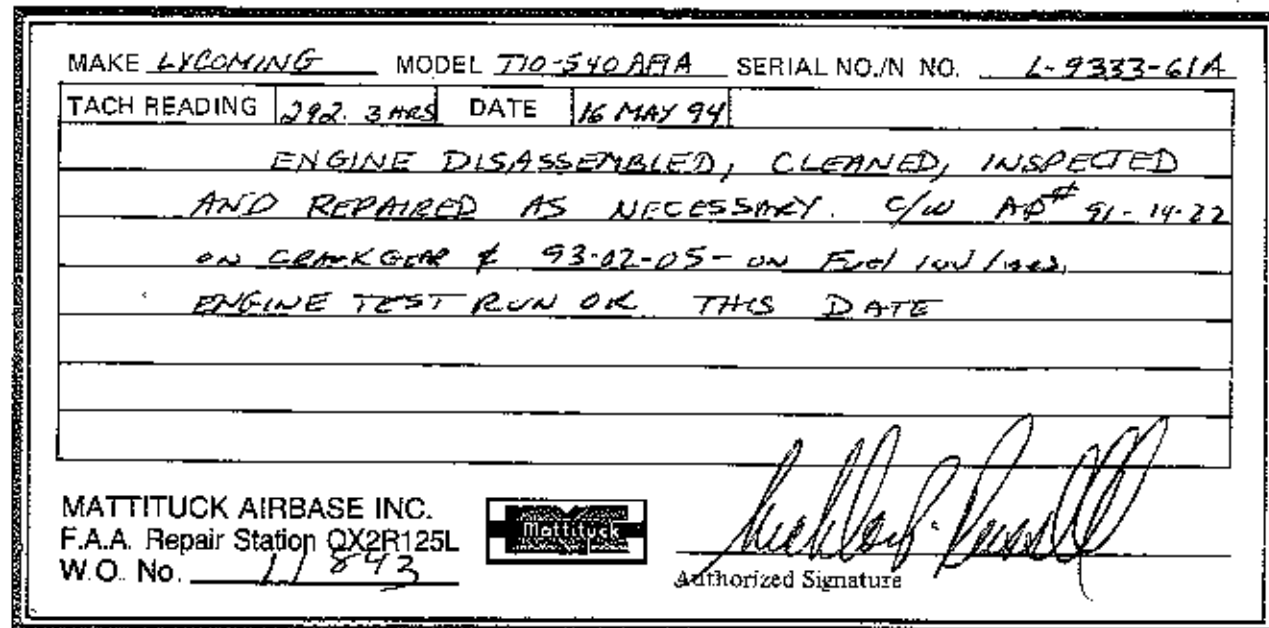 MAKE LYCOMING MODEL TIO-540 AF1A SERIAL NO./N NO. L-9333-61A
TACH READING 292.3 HRS DATE 16 MAY 94
ENGINE DISASSEMBLED, CLEANED, INSPECTED
AND REPAIRED AS NECESSARY. C/W AD# 91-14-22
ON CRANKGEAR & 93-02-05 - ON Fuel
ENGINE TEST RUN OK THIS DATE
MATTITUCK AIRBASE INC.
F.A.A. Repair Station QX2R125L
Mattituck
W.O. No. 11843
Authorized Signature